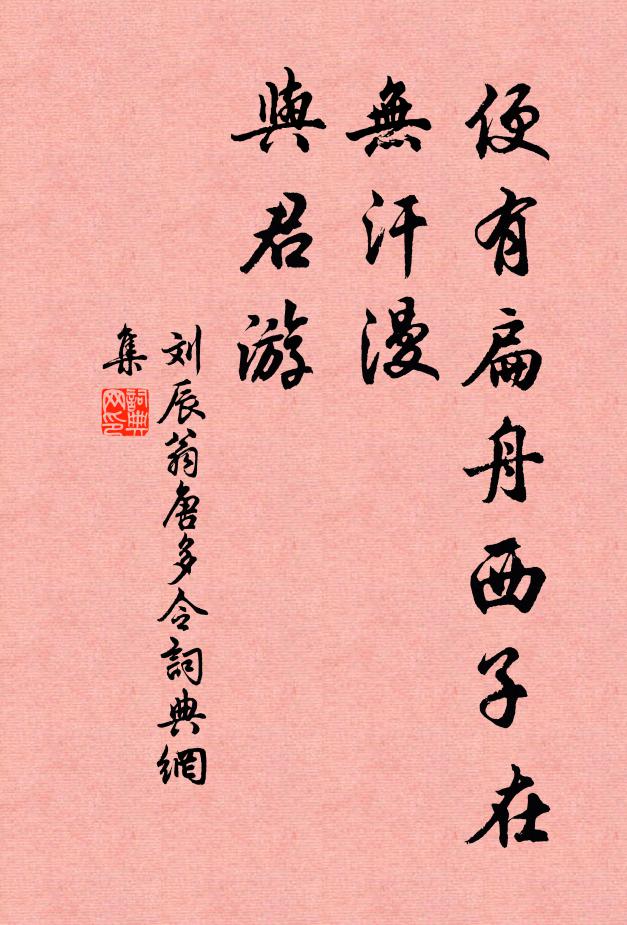 便有扁舟西子在
無汗漫
與君游
刘辰翁唐多令詞典網
集
詞典网印